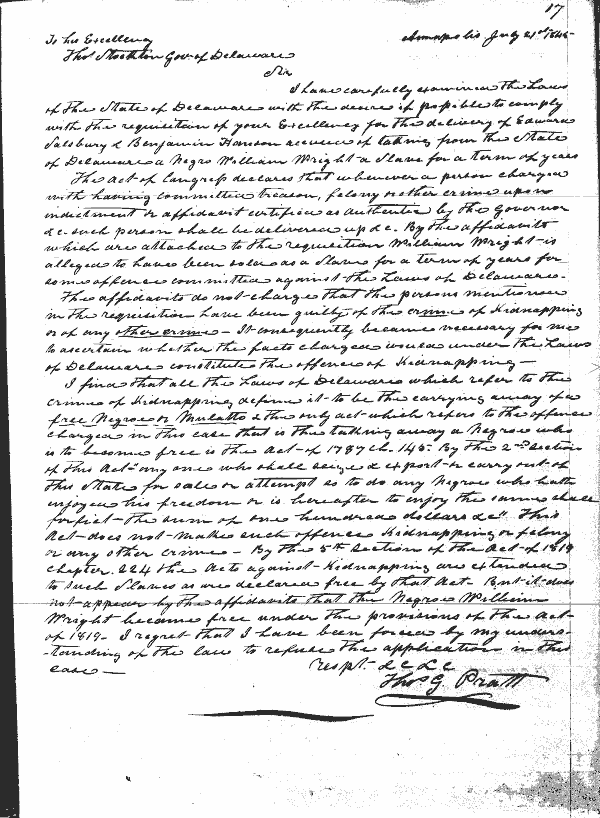 17
To his Excellency Annapolis July 21st 1845
Thos Stockton Gov of Delaware
Sir
I have carefully examined the Laws
of the State of Delaware with the desire if possible to comply
with the requisition of your Excellency for the delivery of Edward
Salsbury & Benjamin Hanson accused of taking from the State
of Delaware a Negro William Wright a Slave for a term of years
The Act of Congress declares that whenever a person charged
with having committed treason, felony or other crime upon
indictment or affidavit certified as authentic by the Governor
&c such person shall be delivered up &c. By the affidavits
which are attached to the requisition William Wright is
alleged to have been sold as a Slave for a term of years for
some offence committed against the Laws of Delaware.
The affidavits do not charge that the persons mentioned
in the requisition have been guilty of the crime of Kidnapping
or of any other crime – It consequently became necessary for me
to ascertain whether the facts charged would under the Laws
of Delaware constitute the offence of Kidnapping –
I find that all the Laws of Delaware which refer to the
crime of Kidnapping define it to be the carrying away of a
free Negroe or Mulatto & the only act which refers to the offence
charged in this case that is the talking away a Negroe who
is to become free is the Act of 1787 Ch. 145. By the 2nd Section
of this Act "any one who shall seize & export or carry out of
this State for sale or attempt so to do any Negroe who hath
enjoyed his freedom or is hereafter to enjoy the same shall
forfiet the sum of one hundred dollars &c". This
Act does not make such offence Kidnapping or felony
or any other crime – By the 5th Section of the Act of 1819
chapter. 224 the Acts against Kidnapping are extended
to such Slaves as are declared free by that Act. But it does
not appear by the affidavits that the Negroe William
Wright became free under the provisions of the Act
of 1819 – I regret that I have been forced by my unders-
-tanding of the law to refuse the application in this
case – respt. &c &c
Thos. G. Pratt